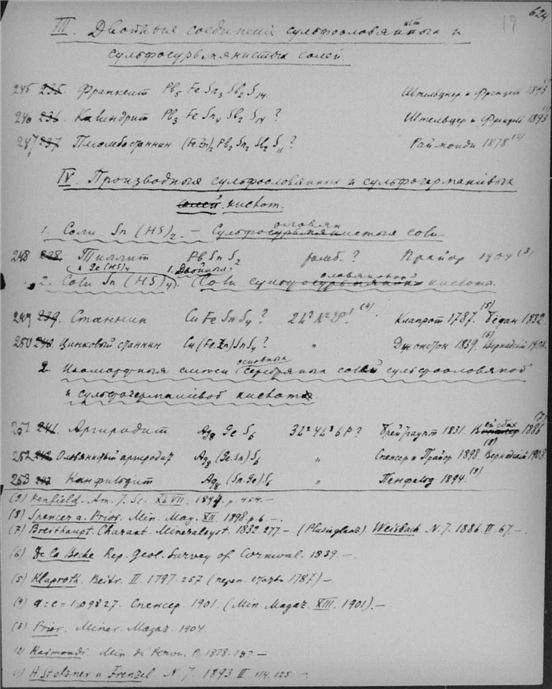 19 624
III. Двойныя соединенія сульфооловянистыхъ и
сульфосурьмянистыхъ солей
245 235. Франкеит Pb5 Fe Sn3 Sb2 S14 Штельцнер и Френцель 1893
246 236. Килиндрит Pb3 Fe Sn4 Sb2 S14 ? Штельцер и Френцель 1893
247 237 Плюмбостаннин (Fe Zn)2 Pb2 Sn2 Sb2 S11 ? Раймонди 1878 (2)
IV. Производныя сульфооловянных и сульфогерманіевых
солей кислот.
1. Соли Sn (HS)2. — Сульфооловянистыя соли
248 238 Тиллит Pb Sn S2 ромб. ? Прайор 1904 (3)
и Ge (HS)4 1. Двойныя
2. Соли Sn (HS)4. (Соли сульфооловянной кислоты.
249 239. Станнин Cu Fe Sn S4 ? (4) Клапрот 1787. (5) Бедан 1832
250 240 Цинковый станнин Cu (Fe Zn) Sn S4 ? " Джонстон 1839. (6)
2. Изоморфныя смеси основных солей сульфооловянной
и сульфогерманіевой кислот
251 241. Аргиродит Ag8 Ge S6 3L4 4L3 6P ? Брейтгаупт 1831. Вейсбах 1886 (7)
252 242 Оловянистый аргиродит Ag8 (Ge Sn) S6 " Спенсер и Прайор 1898. (8) 1908
253 243 Канфильдит Ag8 (Sn Ge) S6 " Пенфильд 1894. (9)
(9) Penfield. Am. J. Sc. XLVII. 1894. p. 454. —
(8) Spencer a. Prior. Min. Mag. XII. 1898 p. 6. —
(7) Breithaupt. Charakt. Mineralsyst. 1832. 277. — (Plusinglanz) Weisbach N. J. 1886. II. 67. —
(6) De La Beche Rep. Geol. Survey of Cornwal. 1839. —
(5) Klaproth. Beitr. II. 1797. 257 (1787). —
(4) a:c = 1:0,9827. Спенсер. 1901. (Min. Magaz. XIII. 1901). —
(3) Prior. Miner. Magaz. 1904.
(2) Raimondi. Min. du Perou. P. 1878. —
(1) A. Stelzner и Frenzel N. J. 1893 II. 114. 125. —